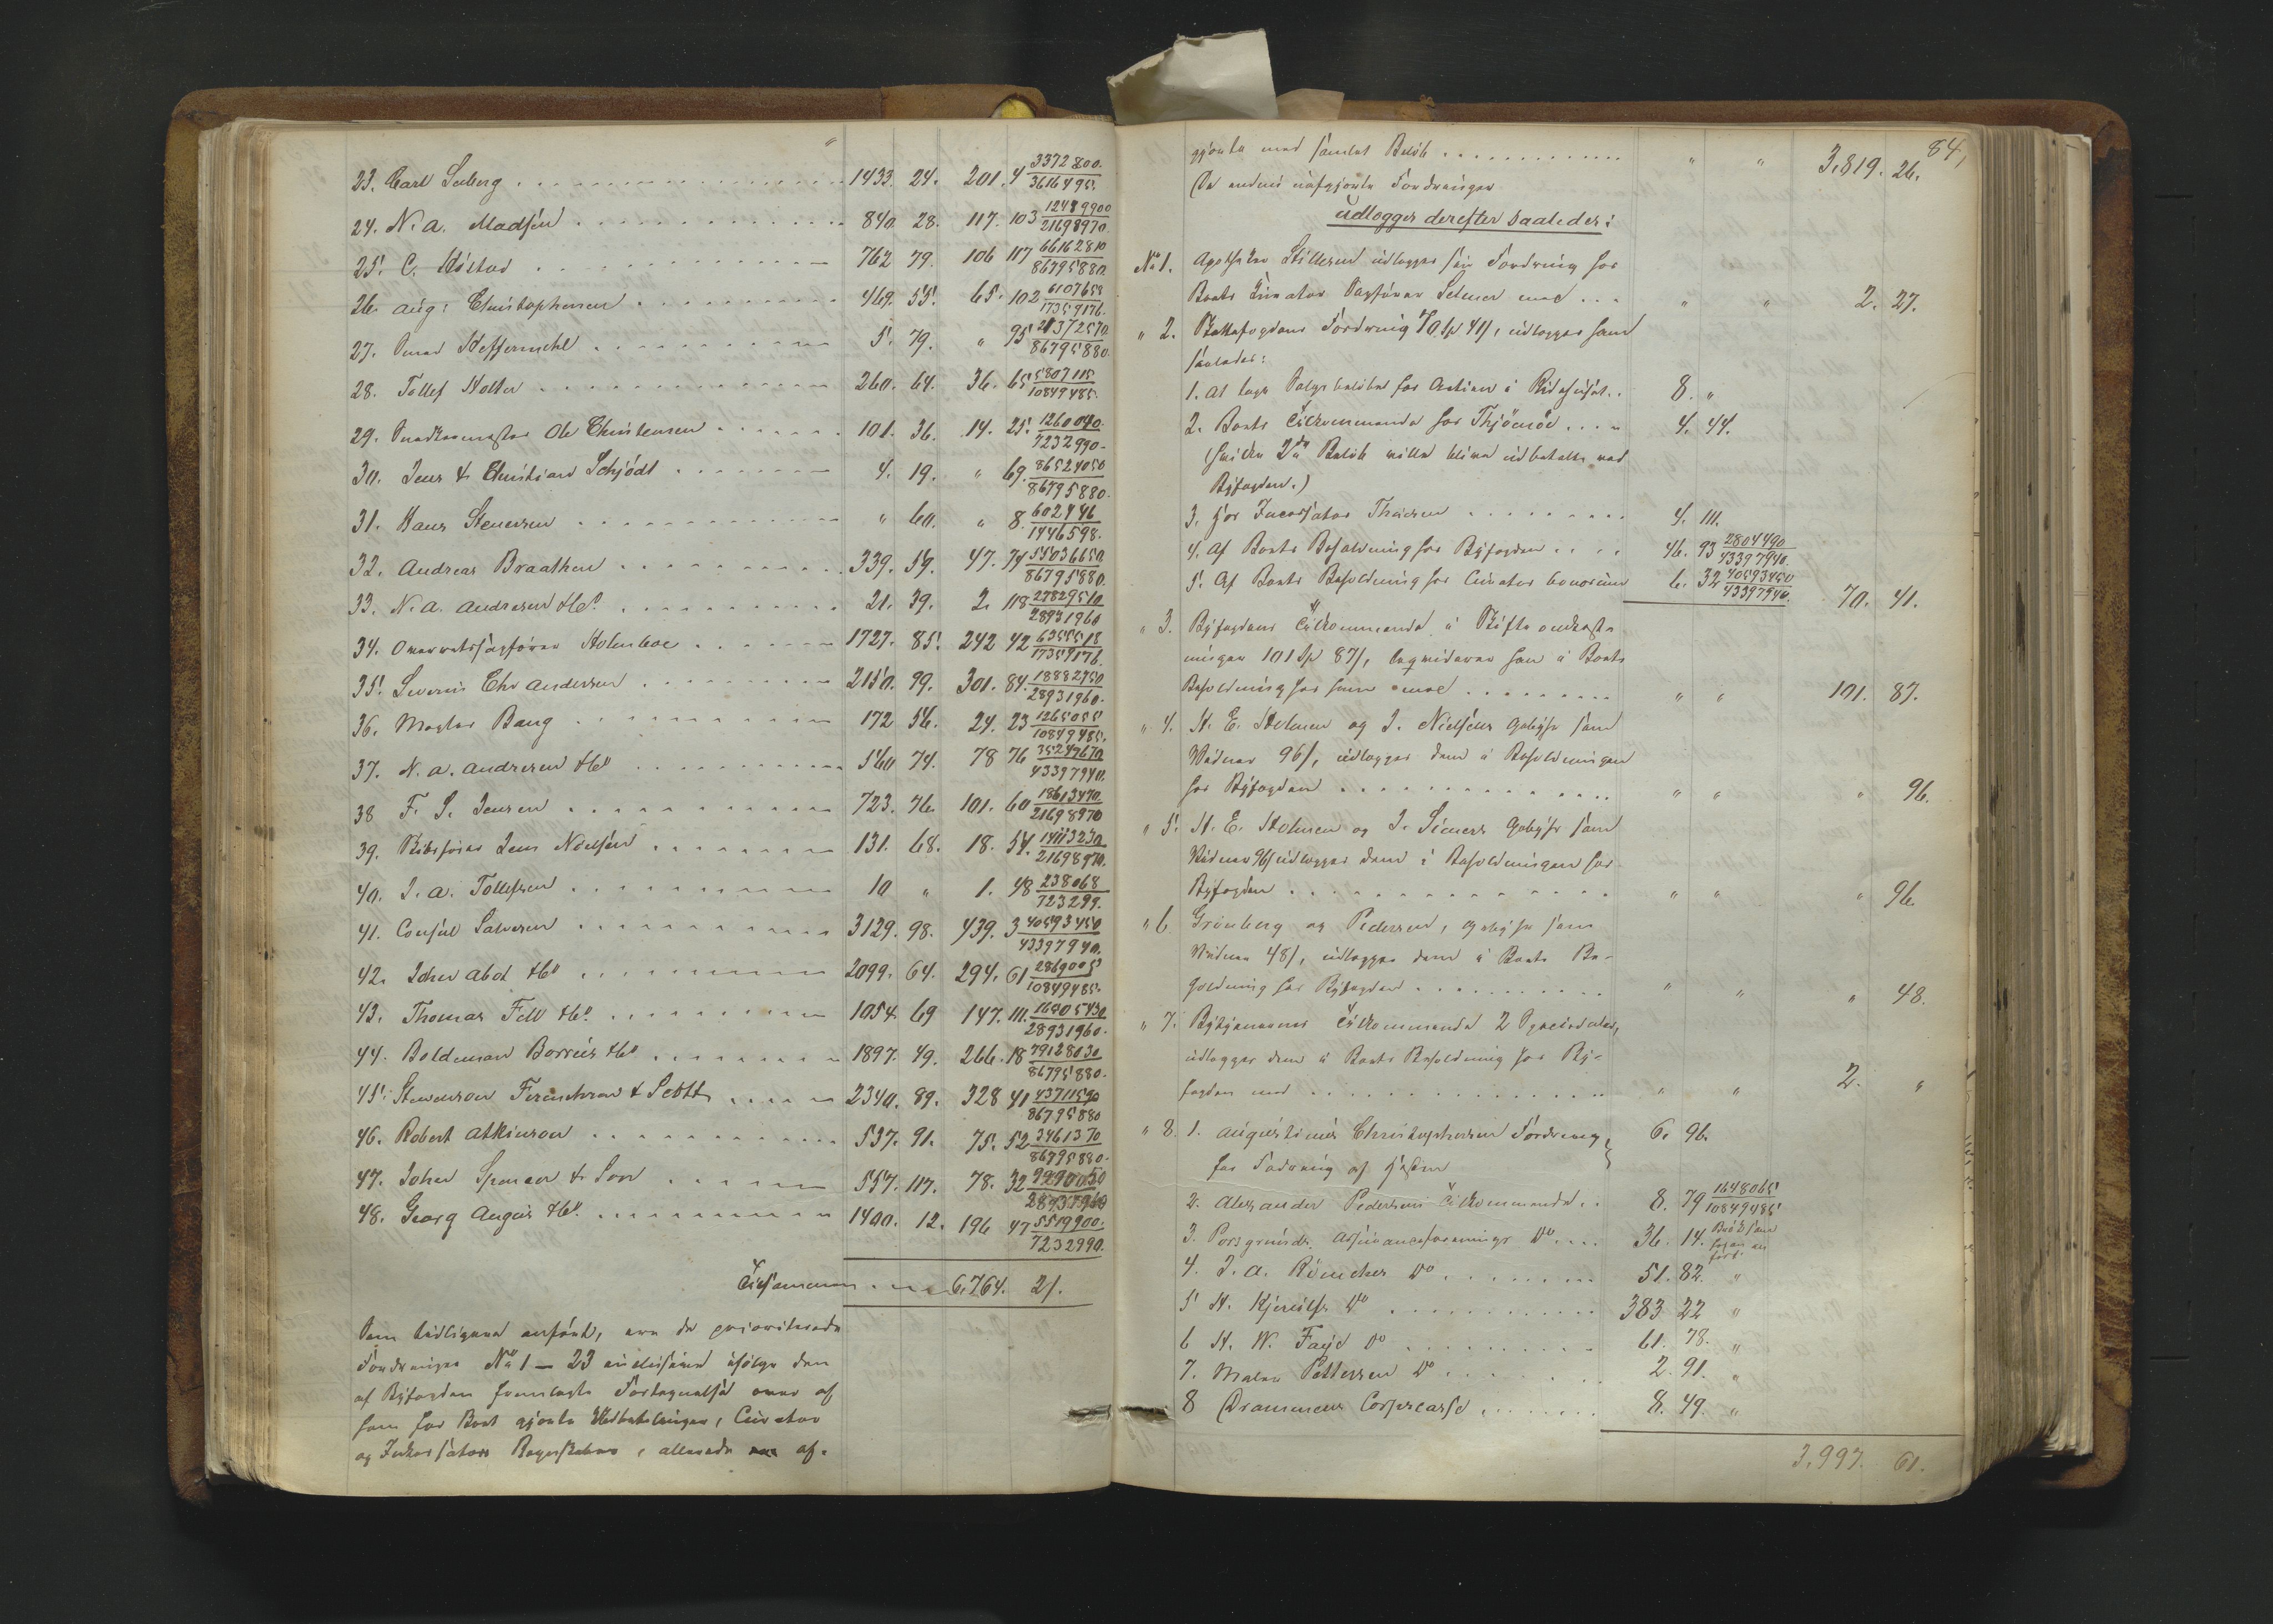 23. Carl Seeberg 1433. 24. 201. 4 3372800/3616495.
24. N. A. Madsen 840. 28. 117. 103 12489900/21698970.
25. C. Kistad 762 79. 106 117 66162810/86795880.
26. Aug: Christophersen 469. 55. 65. 102 6107658/17359176.
27. Heffermehl 5. 79. " 95 21372570/86795880.
28. Tollef Holter 260. 64. 36. 65 5807115/10849485.
29. Ole Christensen 101. 36. 14. 25. 1260040/7232990.
30. Jens & Christian Schjödt 4. 19. " 69. 86524050/86795880.
31. Hans Stenersen " 60. " 8. 602446/1446598.
32. Andreas Braathen 339. 59. 47. 74 54036650/86795880.
33. N. A. Andresen & Co. 21. 39. 2. 118 27829510/28931960
34. Overretssagfører Holmboe 1727. 85. 242 42 6355518/17359176.
35. Severin Chr Andersen 2150. 99. 301. 84. 18882750/28931960.
36. Mægler Bang 172 56. 24. 23 1265055/10849485.
37. N. A. Andresen & Co 560 74. 78 76 35247670/43397940.
38 F. S. Jensen 723. 76. 101. 60 18613470/21698970
39. Skibsfører Jens Nielsen 131. 68. 18. 54. 14113230/21698970.
40. J. A. Tollefsen 10 " 1. 48 238068/723299.
41. Consul Salvesen 3129. 98. 439. 3 40593450/43397940.
42. John Abel & Co 2099. 64. 294. 61 2869005/10849485.
43. Thomas Fell & Co. 1054. 69 147. 111. 16005430/28931960.
44. Boldeman Borries & Co 1897. 49. 266. 18 79128030/86795880.
45. Stevenson & Scott 2340. 89. 328 41 43711590/86795880
46. Robert Atkinson 537. 91. 75. 52 3461370/86795880.
47. John Spencer & Son 557. 117. 78. 32
48. Georg Angus & Co. 1400. 12. 196 47 5519900./7232990.
Tilsammen 6,764. 21.
Som tidligere anført, ere de prioriterede
Fordringer No 1 – 23 inclusive ifølge den
af Byfogden fremlagte Fortegnelse over af
ham for Boet gjorte Udbetalinger, Curator
og Inkassators Regnskaber, allerede af-
84,
gjorte med samlet Beløb " " 3,819. 26.
De endnu uafgjorte Fordringer
udlægges derefter saaledes:
No 1. Apotheker udlægges sin Fordring hos
Boets Curator Sagfører Selmer med " " 2. 27.
" 2. Fordring 70 Sp 41/, udlægges ham
saaledes:
1. At tage for Actien i 8. "
2. Boets Tilkommende hos Thjömöe 4. 44.
(hvilke 2de Beløb ville blive udbetalte ved
Byfogden.)
3. Hos Incassator Thaersen 4. 111.
4. Af Boets Beholdning hos Byfogden 46. 93 2804490/43397940.
5. Af Boets Beholdning hos Curator bonorum 6. 32 40593450/43397940. 70. 41.
" 3. Byfogdens Tilkommende i Skifteomkost-
ninger 101 Sp 87/, liqviderer han i Boets
Beholdning hos ham med " " 101. 87.
" 4. H. E. Holmen og J. Nielsens Gebyhr som
Vidner 96/, udlægges dem i Beholdningen
hos Byfogden " " " 96.
" 5. H. E. Holmen og J. Simers Gebyhr som
Vidner 96/ udlægges dem i Beholdningen hos
Byfogden " " " 96.
" 6 Grönberg og Pedersen, Gebyhr som
Vidner 48/, udlægges dem i Boets Be-
holdning hos Byfogden " " " 48.
" 7. Tilkommende 2 Speciedaler,
udlægges dem i Boets Beholdning hos By-
fogden med " " 2. "
" 8. 1. Augustinus Christophersens Fordring, 6. 96.
for Fodring af Hesten
2. Alexander Pedersens Tilkommende 8. 79 1648065/10849485
3. Porsgrunds Assuranceforenings Do 36. 14. Brøk som
4. J. A. Do 51. 82. "
5 H. Do 383 22 "
6 H. W. Faye Do 61. 78. "
7. Maler Pettersen Do 2. 91. "
8 Drammens 8. 49. "
3,997. 61.